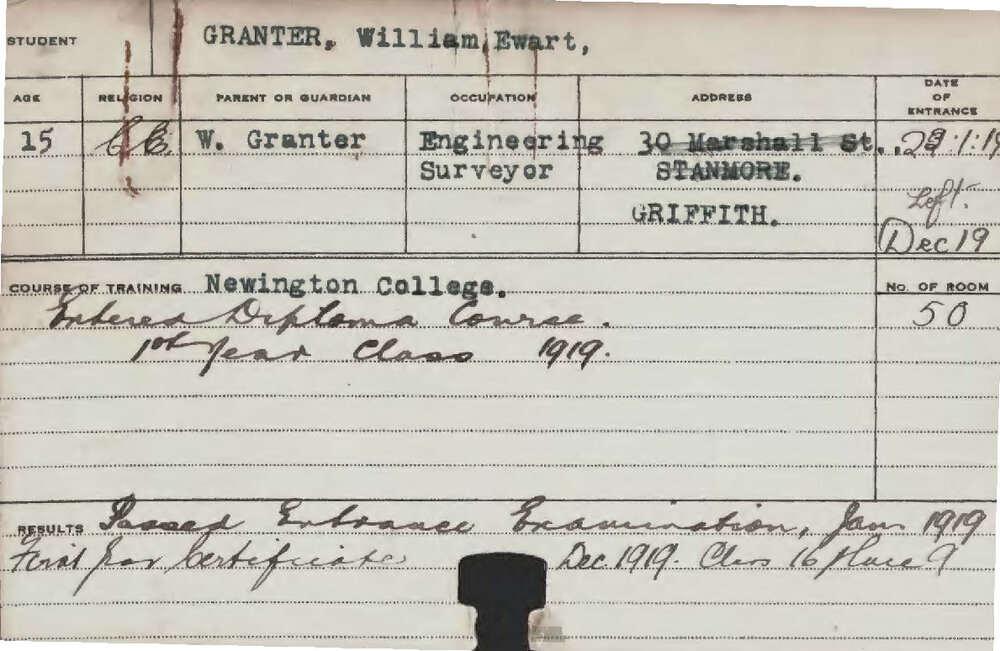 STUDENT GRANTER, William Ewart,
AGE RELIGION PARENT OR GUARDIAN OCCUPATION ADDRESS DATE OF ENTRANCE
15 W. Granter Engineering 30 Marshall St., 29:1:19
Surveyor STANMORE.
GRIFFITH. Left.
Dec 19
COURSE OF TRAINING Newington College. NO. OF ROOM
Entered Diploma Course. 50
1st Year Class 1919.
RESULTS Passed Entrance Examination, Jan 1919
First Year Certificate Dec. 1919. Class 16 place 9